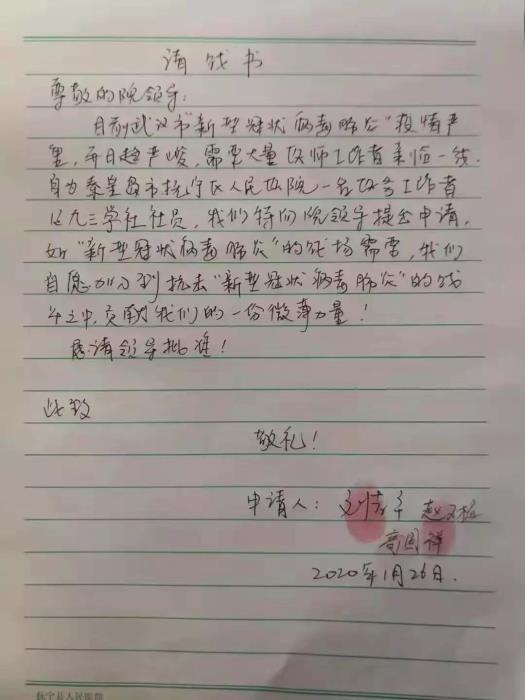 请战书
尊敬的院领导：
目前武汉市“新型冠状病毒肺炎”疫情严
重，每日趋严峻，需要大量医师工作者亲临一线.
身为秦皇岛市抚宁区人民医院一名医务工作者
以九三学社社员，我们特向院领导提出申请，
如“新型冠状病毒肺炎”的战场需要，我们
自愿加入到抗击“新型冠状病毒肺炎”的战
斗之中，贡献我们的一份微薄力量！
恳请领导批准！
此致
敬礼！
申请人：
高国祥
2020年1月26日.
抚宁县人民医院